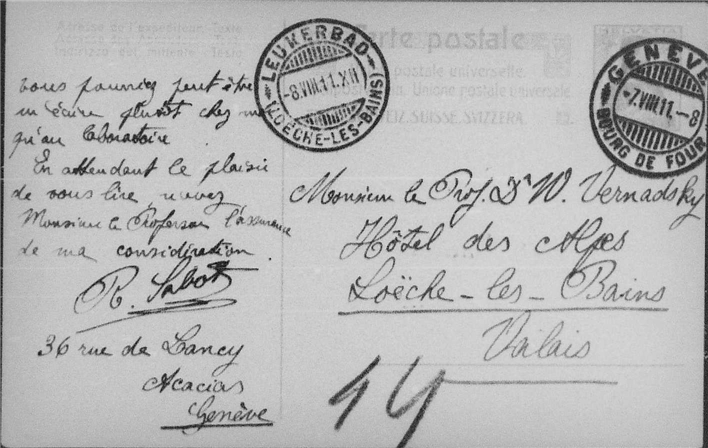 Adresse de l'expéditeur. Texte
Indirizzo del mittente. Testo
Carte postale
postale universelle.
Unione postale universale
SUISSE. SVIZZERA.
HELVETIA
LEUKERBAD
-8.VIII.11.XII
(LOËCHE-LES-BAINS)
GENÈVE
-7.VIII.11.-8
BOURG DE FOUR
vous pourriez peut être
m'écrire plutôt chez
qu'au laboratoire
En attendant le plaisir
de vous lire, recevez
Monsieur le Professeur l'assurance
de ma considération.
R. Sabot
36 rue de Lancy
Acacias
Genève
Monsieur le Prof. Dr W. Vernadsky
Hôtel des Alpes
Loëche-les-Bains
Valais
14